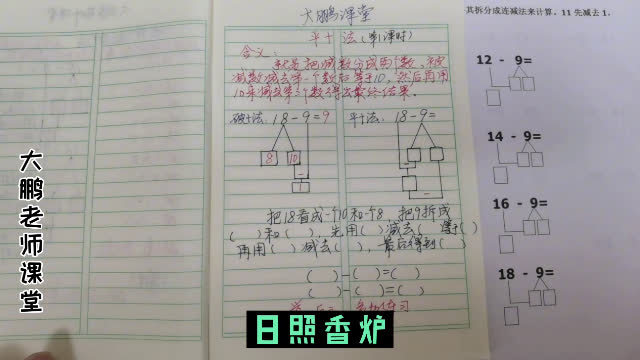 大鹏课堂
平十法(第1课时)
含义:
就是把减数分成两个数,被
减数减去第一个数后等于10,然后再用
10来减去第二个数得出最终结果.
破十法:18-9=9
平十法:18-9=
8 10
把18看成一个10和一个8,把9拆成
( )和( ),先用( )减去( )等于( )
再用( )减去( ),最后得到( )
( )-( )=( )
( )-( )=( )
其拆分成连减法来计算。11 先减去 1,
12 - 9=
14 - 9=
16 - 9=
18 - 9=
大鹏老师课堂
日照香炉